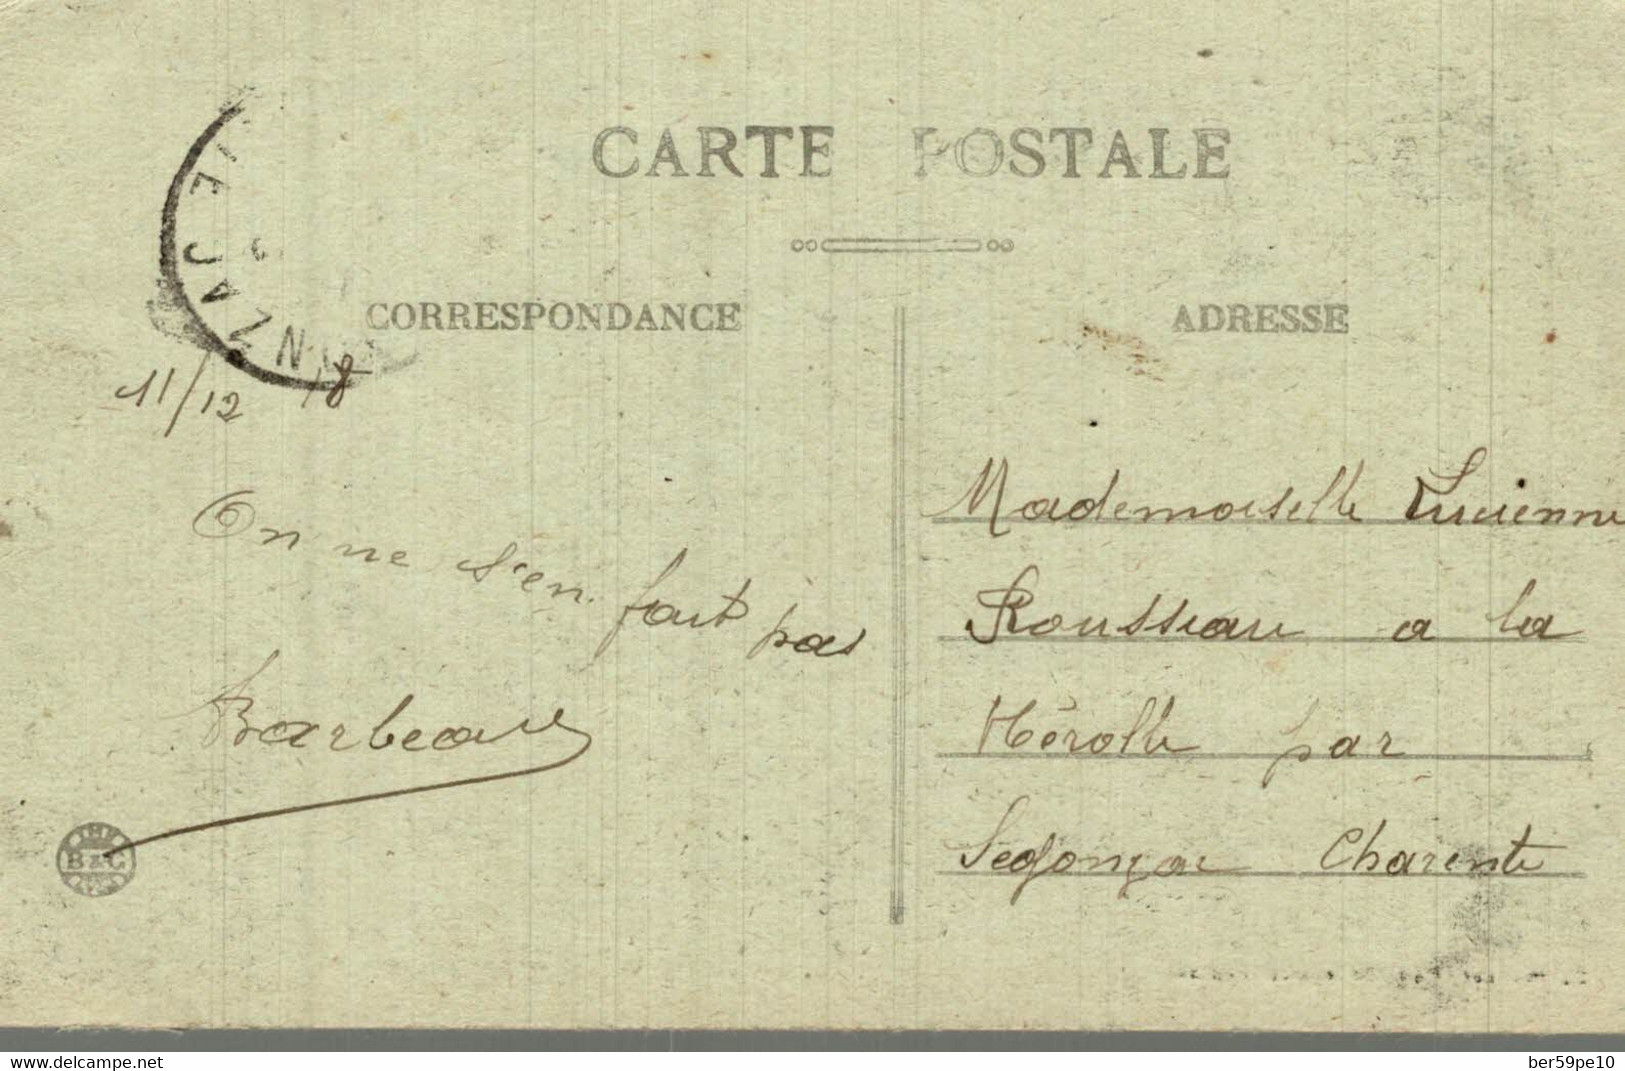 CARTE POSTALE
CORRESPONDANCE
ADRESSE
11/12 18
On ne s'en fait pas
Barbeau
B & C
Mademoiselle Lucienne
Rousseau a la
Nérolle par
Segonzac Charente
www.delcampe.net
ber59pe10